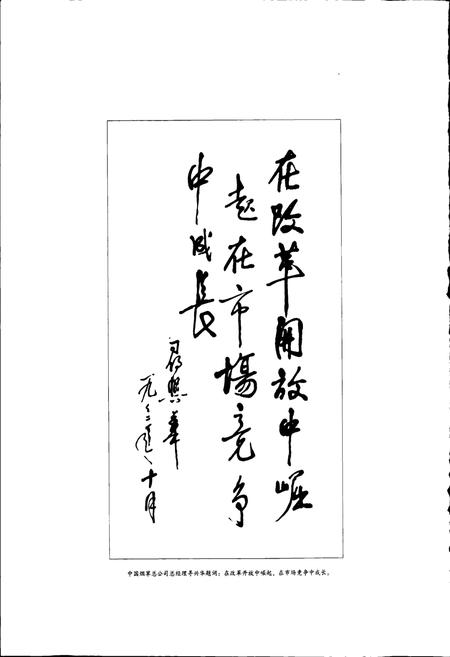 在改革開放中崛
起在市場竞争
中成長
一九九二年十月
中国烟草总公司总经理寻兴华题词：在改革开放中崛起，在市场竞争中成长。